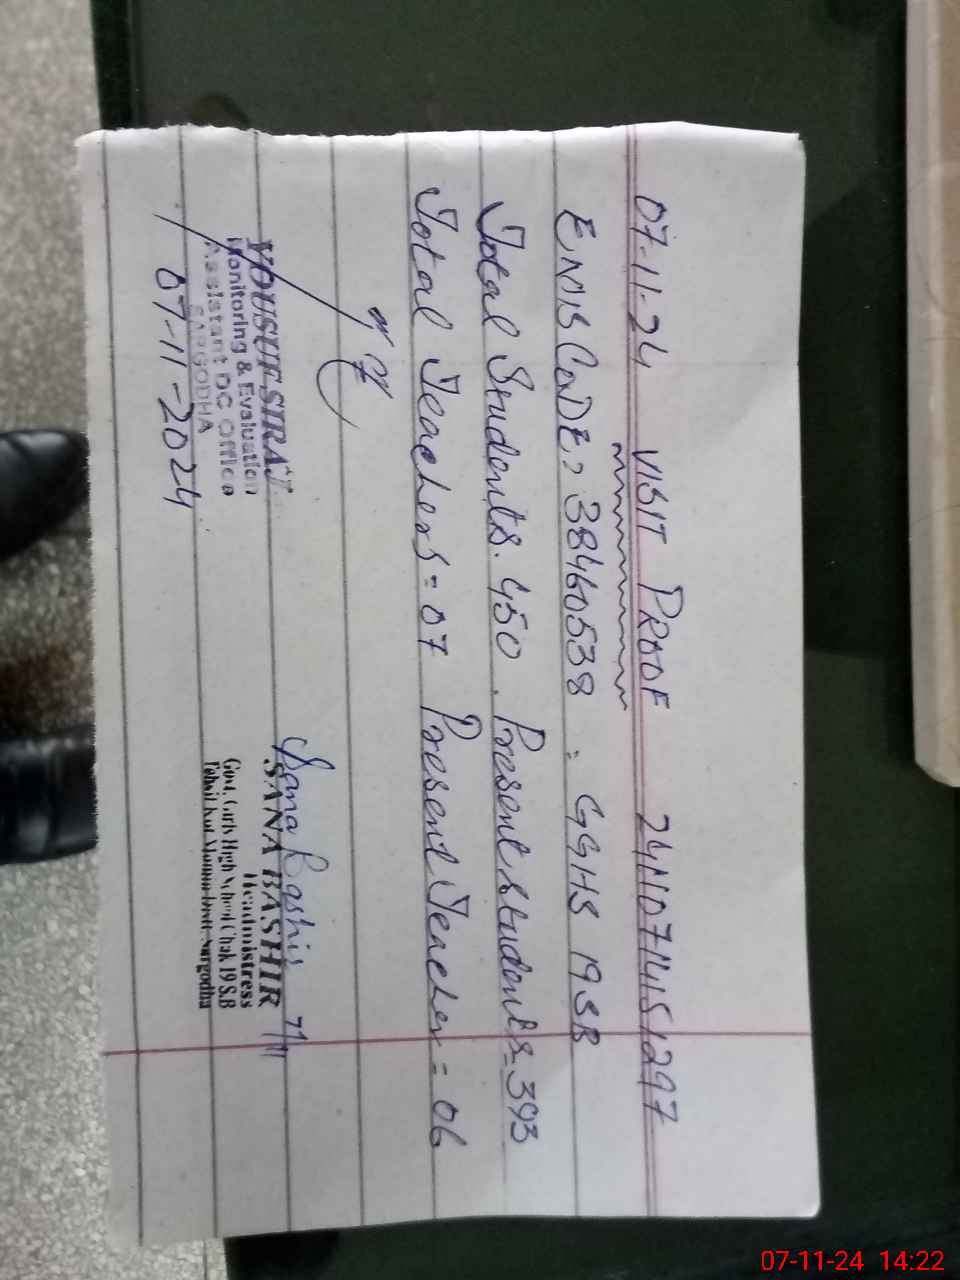 07-11-24 VISIT PROOF 241107141151297
EMIS CODE, 38460538 = GGHS 19SB
Total Students. 450. Present students=393
Total Teachers=07 Present Teacher=06
YOUSUF SIRAJ
Monitoring & Evaluation
Assistant DC Office
SARGODHA
07-11-2024
Sana Bashir 7/11
SANA BASHIR
Headmistress
Govt. Girls High School Chak 19 S.B
Tehsil Kot Momin Distt. Sargodha
07-11-24 14:22